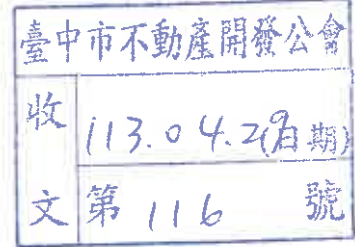 臺中市不動產開發公會
收文
113.04.29(日期)
第 116 號